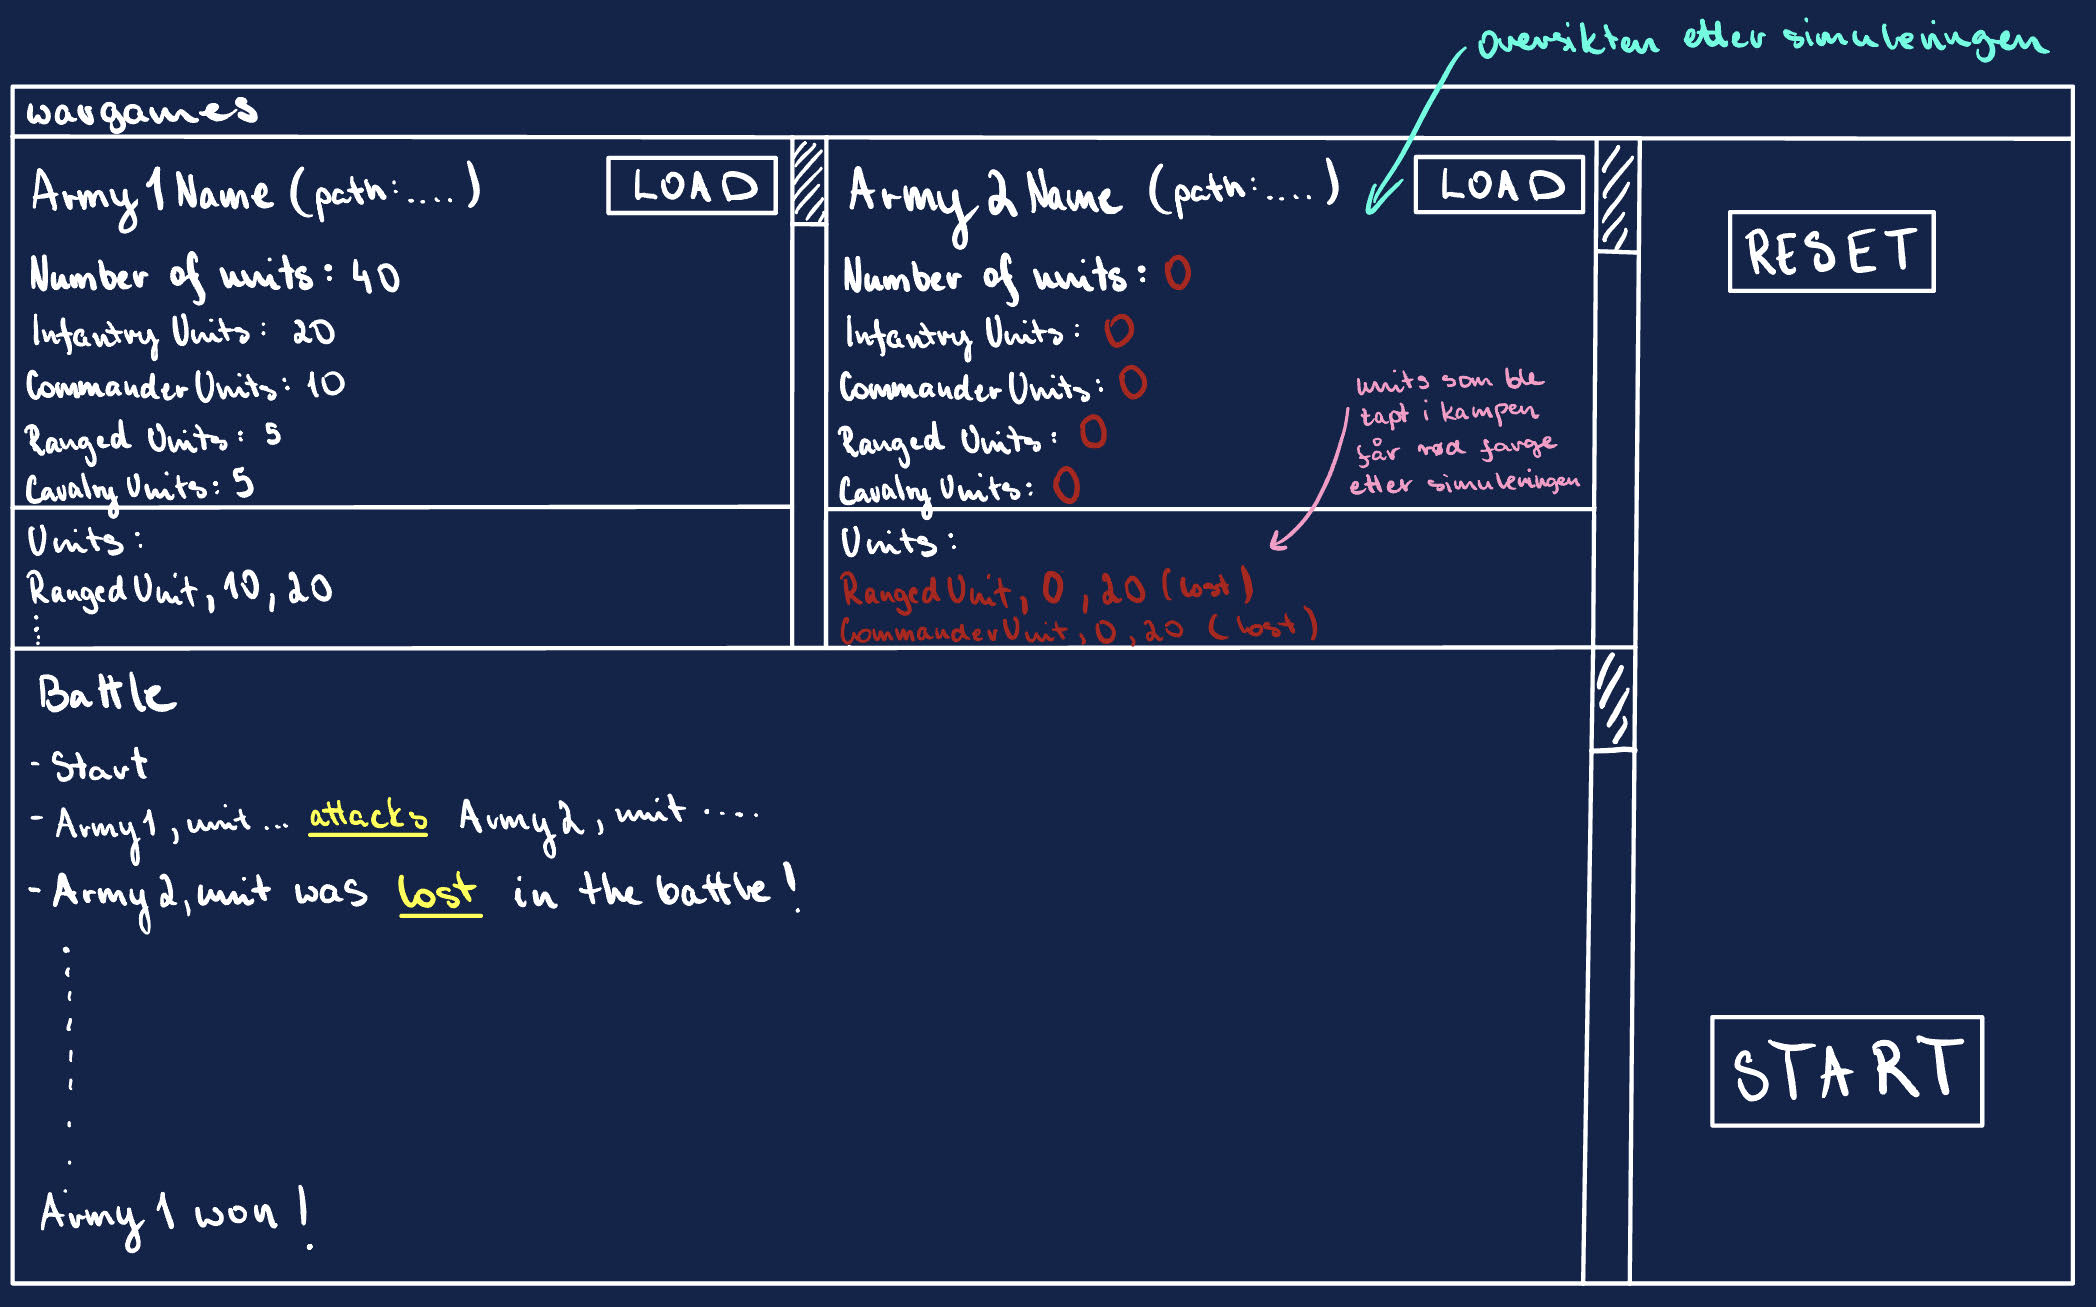 oversikten etter simuleringen
wargames
Army 1 Name (path:....)
LOAD
Number of units: 40
Infantry Units: 20
Commander Units: 10
Ranged Units: 5
Cavalry Units: 5
Units:
Ranged Unit, 10, 20
Army 2 Name (path:....)
LOAD
Number of units: 0
Infantry Units: 0
Commander Units: 0
Ranged Units: 0
Cavalry Units: 0
units som ble
tapt i kampen
får rød farge
etter simuleringen
Units:
Ranged Unit, 0, 20 (lost)
Commander Unit, 0, 20 (lost)
RESET
Battle
- Start
- Army 1, unit... attacks Army 2, unit ....
- Army 2, unit was lost in the battle!
Army 1 won!
START